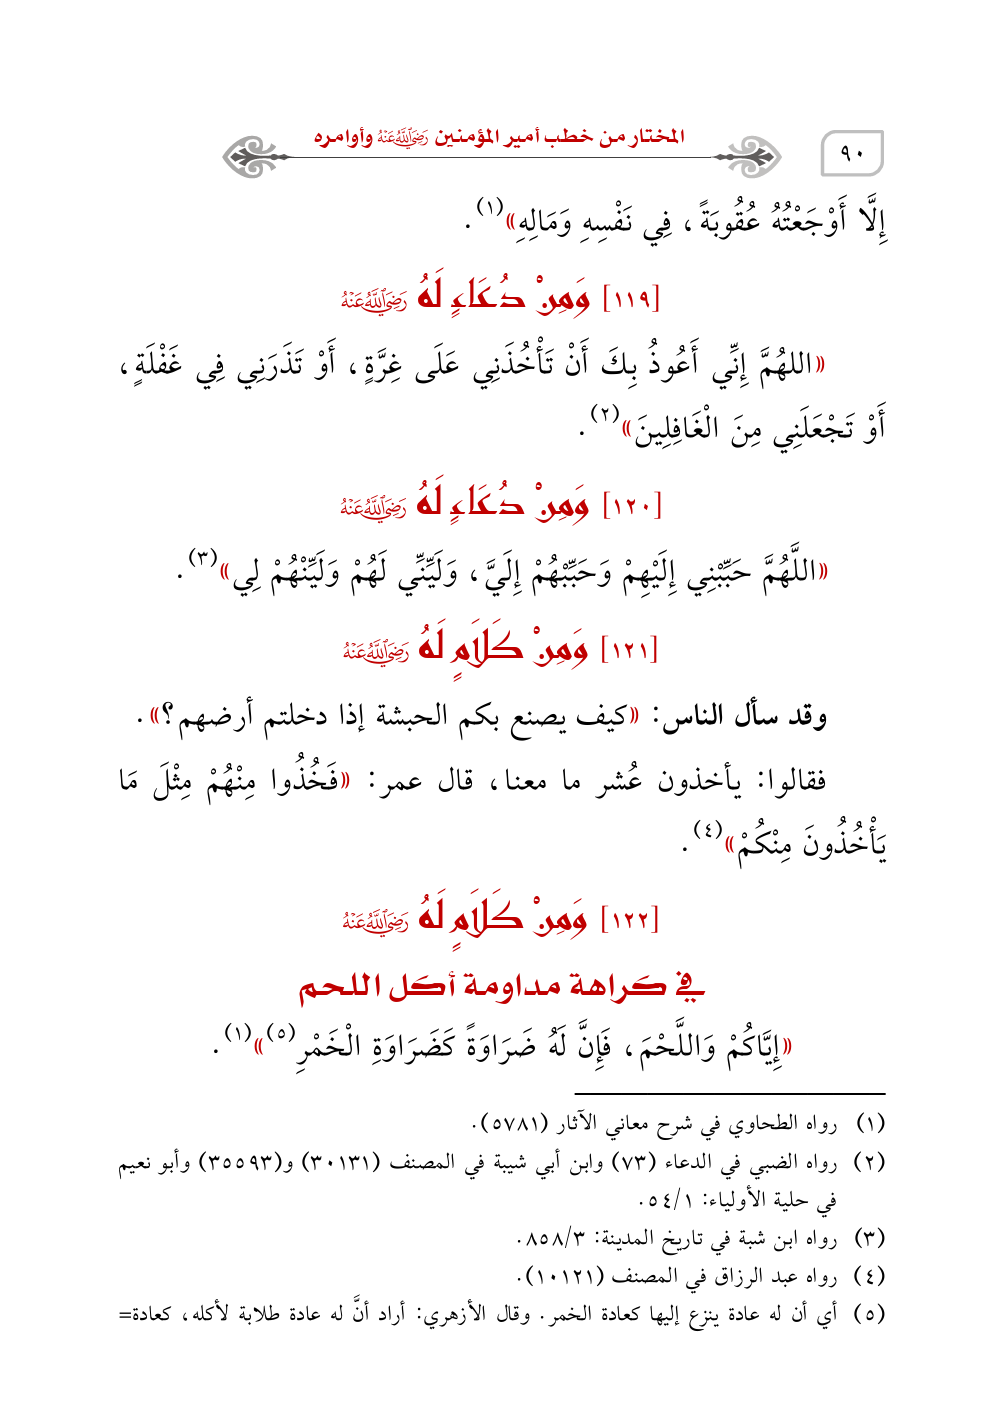 ٩٠
المختار من خطب أمير المؤمنين رَضِيَ اللَّهُ عَنْهُ وأوامره
إِلَّا أَوْجَعْتُهُ عُقُوبَةً، فِي نَفْسِهِ وَمَالِهِ»(١).
[١١٩] وَمِنْ دُعَاءٍ لَهُ رَضِيَ اللَّهُ عَنْهُ
«اللهُمَّ إِنِّي أَعُوذُ بِكَ أَنْ تَأْخُذَنِي عَلَى غِرَّةٍ، أَوْ تَذَرَنِي فِي غَفْلَةٍ،
أَوْ تَجْعَلَنِي مِنَ الْغَافِلِينَ»(٢).
[١٢٠] وَمِنْ دُعَاءٍ لَهُ رَضِيَ اللَّهُ عَنْهُ
«اللَّهُمَّ حَبِّبْنِي إِلَيْهِمْ وَحَبِّبْهُمْ إِلَيَّ، وَلَيِّنِّي لَهُمْ وَلَيِّنْهُمْ لِي»(٣).
[١٢١] وَمِنْ كَلَامٍ لَهُ رَضِيَ اللَّهُ عَنْهُ
وقد سأل الناس: «كيف يصنع بكم الحبشة إذا دخلتم أرضهم؟».
فقالوا: يأخذون عُشر ما معنا، قال عمر: «فَخُذُوا مِنْهُمْ مِثْلَ مَا
يَأْخُذُونَ مِنْكُمْ»(٤).
[١٢٢] وَمِنْ كَلَامٍ لَهُ رَضِيَ اللَّهُ عَنْهُ
في كراهة مداومة أكل اللحم
«إِيَّاكُمْ وَاللَّحْمَ، فَإِنَّ لَهُ ضَرَاوَةً كَضَرَاوَةِ الْخَمْرِ(٥)»(١).
(١) رواه الطحاوي في شرح معاني الآثار (٥٧٨١).
(٢) رواه الضبي في الدعاء (٧٣) وابن أبي شيبة في المصنف (٣٠١٣١) و(٣٥٥٩٣) وأبو نعيم
في حلية الأولياء: ٥٤/١.
(٣) رواه ابن شبة في تاريخ المدينة: ٨٥٨/٣.
(٤) رواه عبد الرزاق في المصنف (١٠١٢١).
(٥) أي أن له عادة ينزع إليها كعادة الخمر. وقال الأزهري: أراد أنَّ له عادة طلابة لأكله، كعادة=